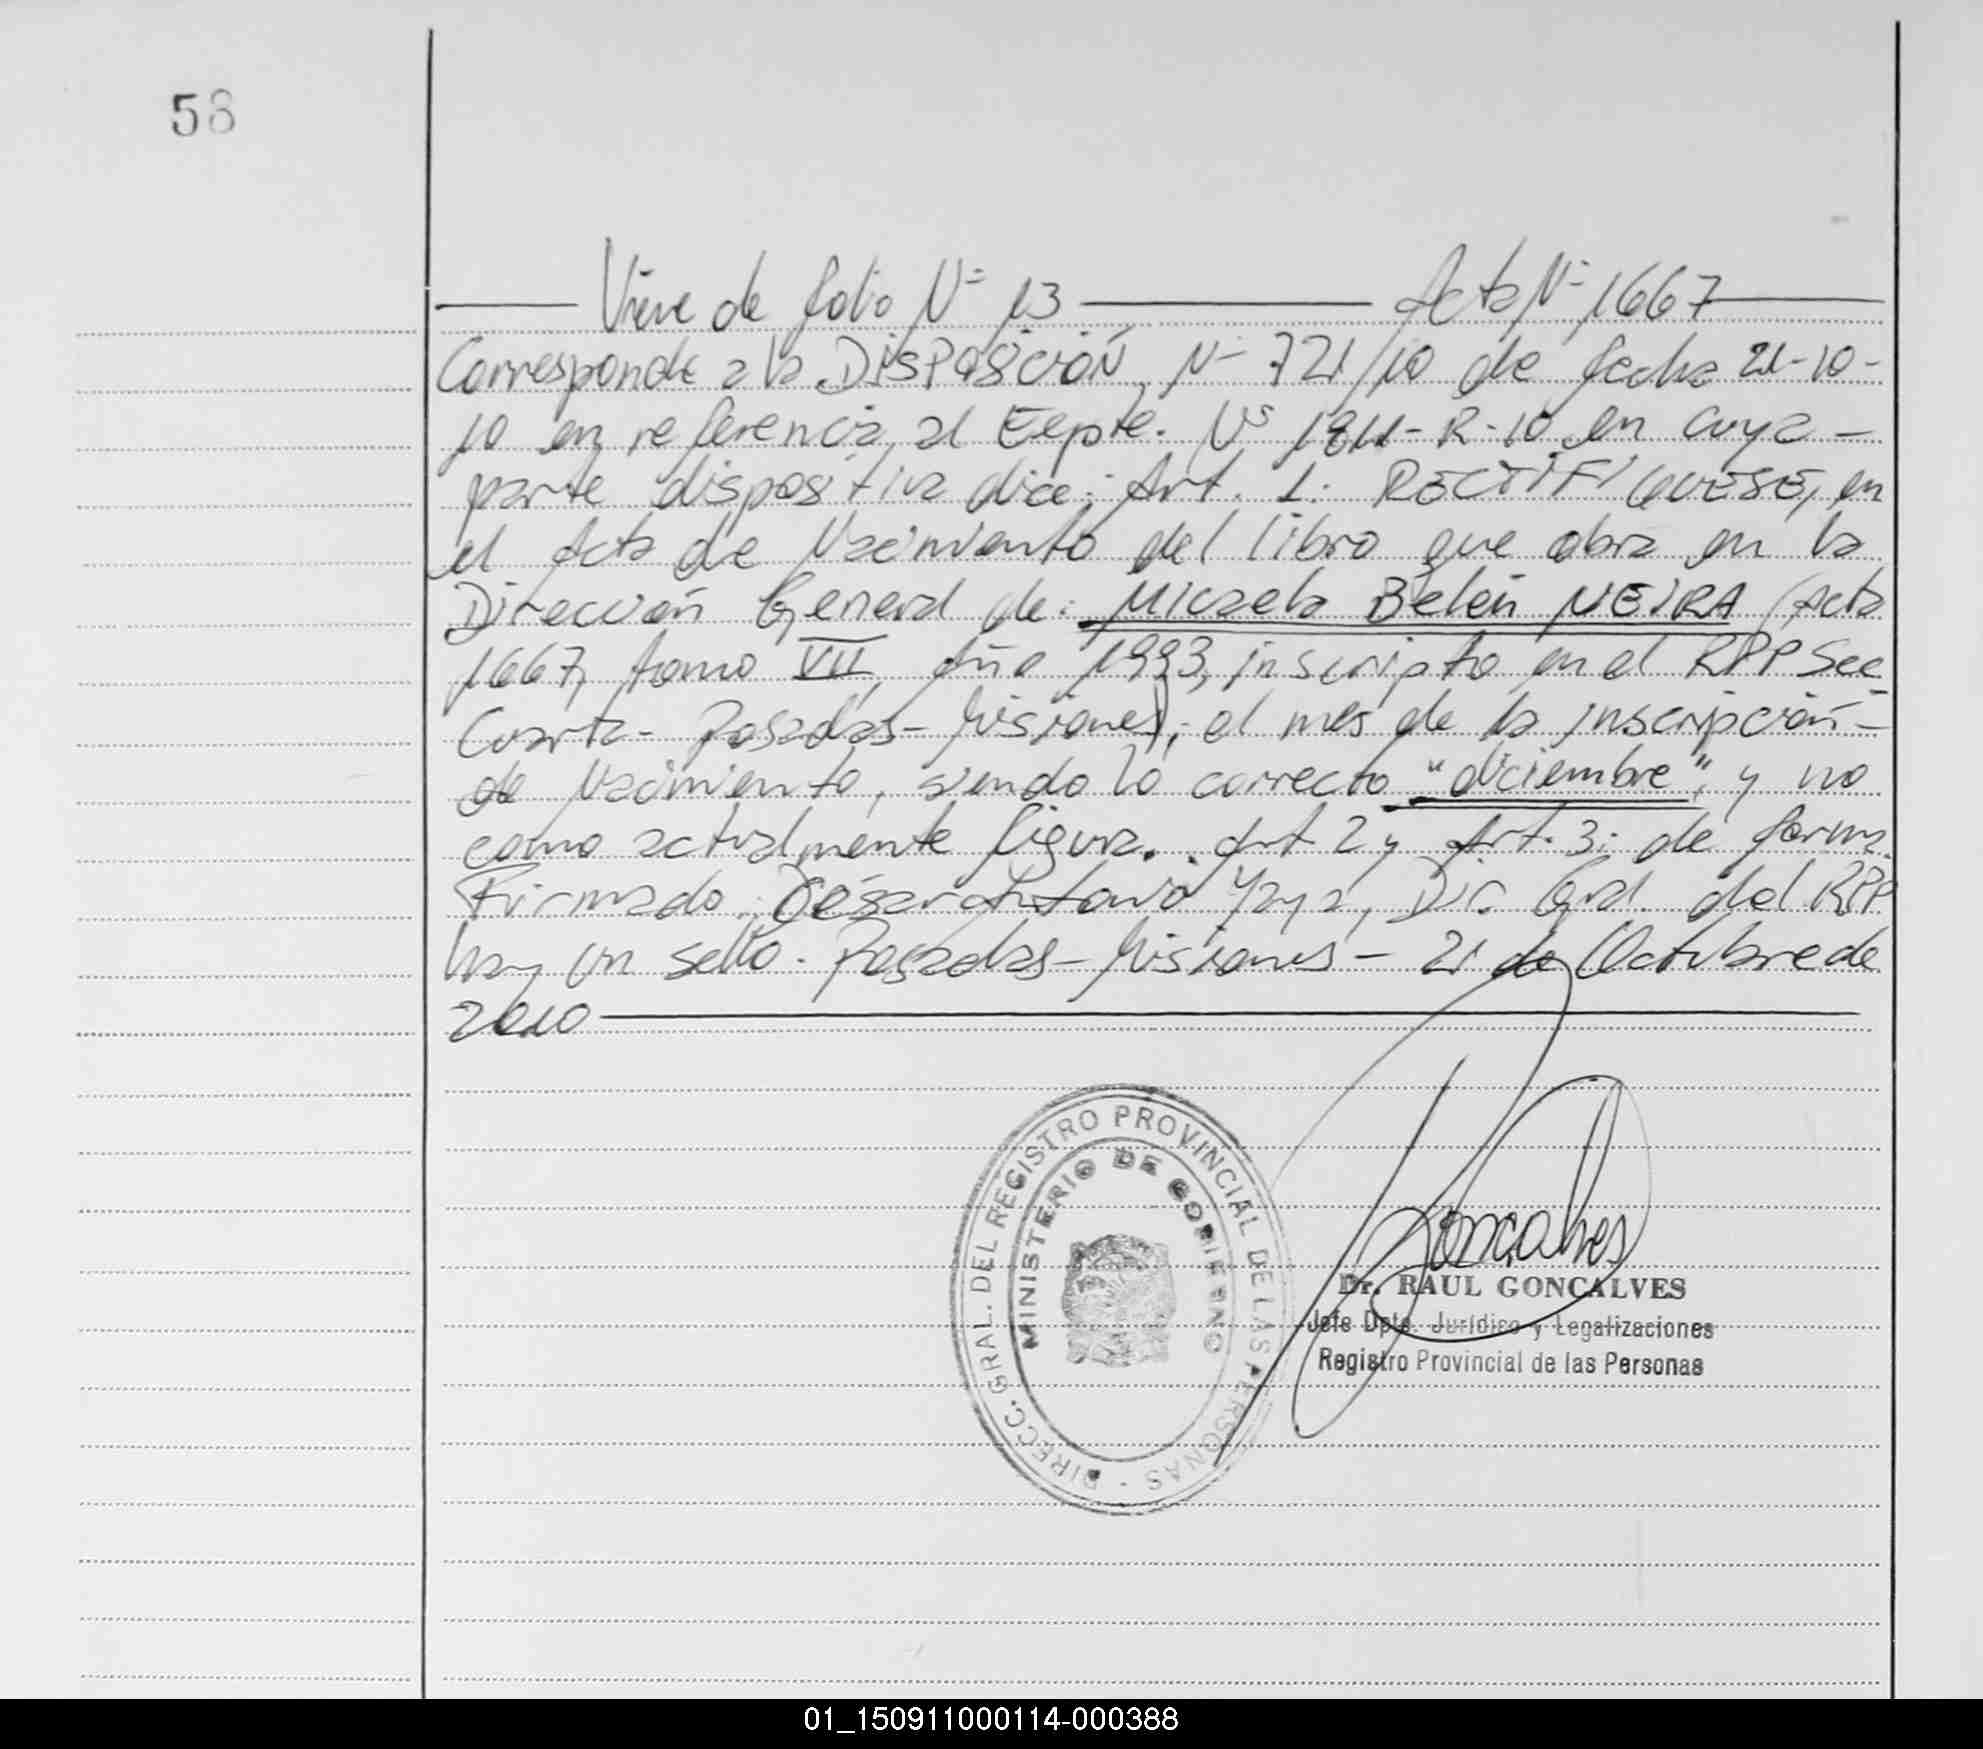 58
Viene de folio Nº 13 Acta Nº 1667
Corresponde a la DISPOSICIÓN, Nº 721/10 de fecha 21-10-
10 en referencia, al Expte. Nº 1811-R-10 en cuya -
parte dispositiva dice: Art. 1: RECTIFIQUESE, en
el Acta de Nacimiento del libro que obra en la
Dirección General de: Micaela Belén NEIRA (Acta
1667, tomo VII, Año 1993, inscripto en el RPP Sec
Cuarta - Posadas - Misiones); el mes de la inscripción -
de Nacimiento, siendo lo correcto "diciembre", y no
como actualmente figura. Art 2 y Art. 3: de forma.
Firmado: César Antonio Yaya, Dir. Gral. del RPP
hay un sello. Posadas - Misiones - 21 de Octubre de
2010
DIRECC. GRAL. DEL REGISTRO PROVINCIAL DE LAS PERSONAS -
MINISTERIO DE GOBIERNO
Goncalves
Dr. RAUL GONCALVES
Jefe Dpto. Jurídico y Legalizaciones
Registro Provincial de las Personas
01_150911000114-000388